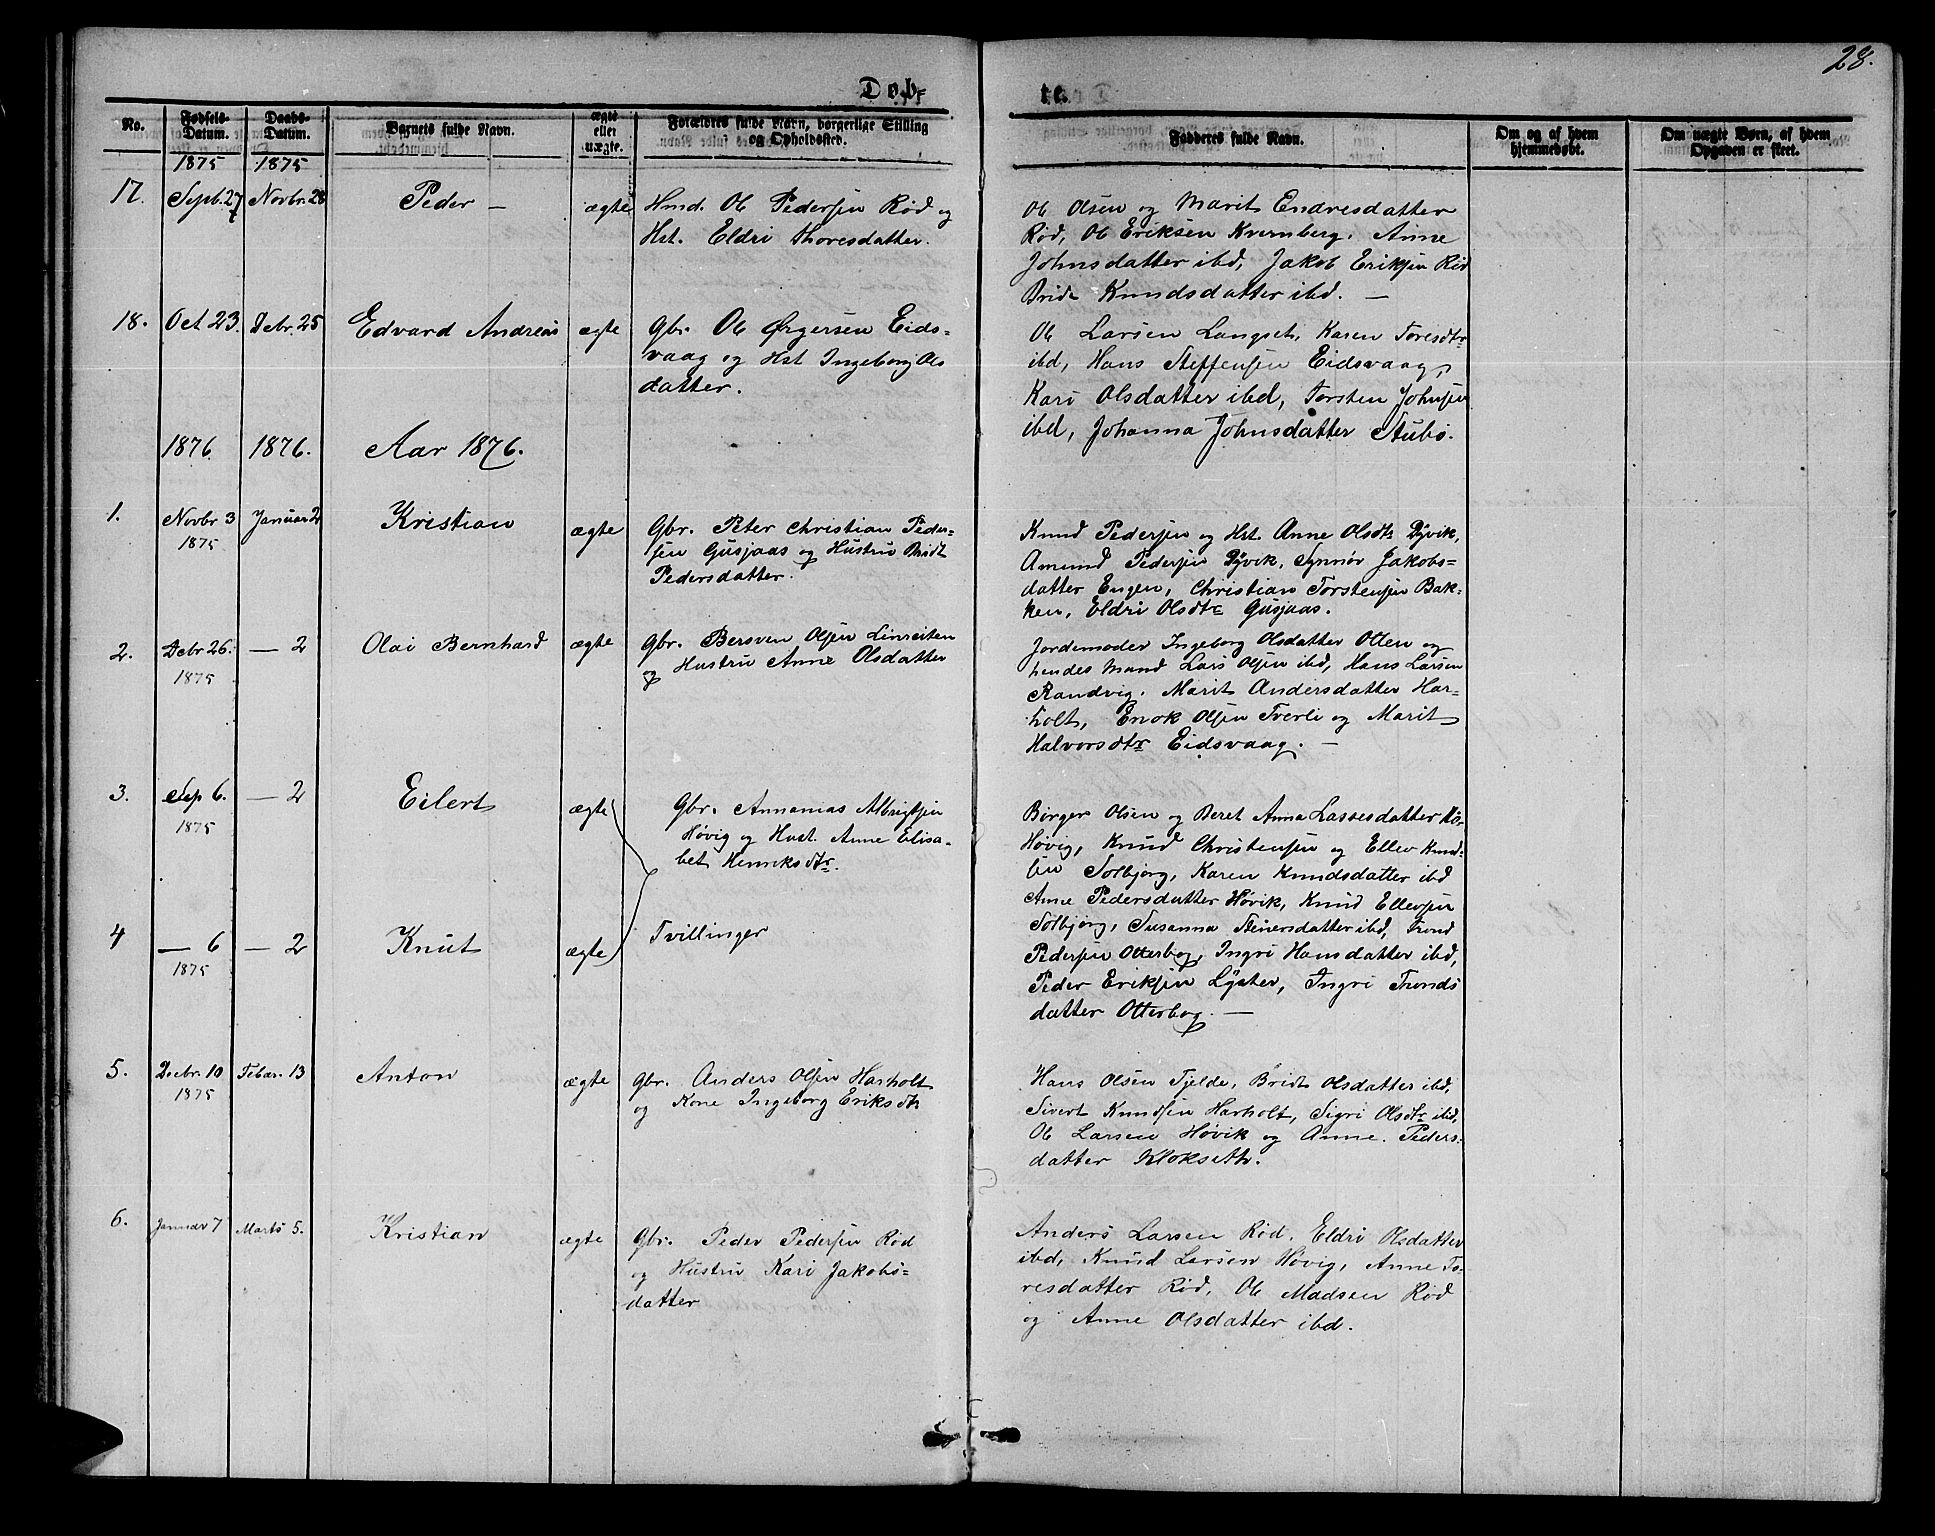 28.
Døb-
te.
No.
Fødsels-Datum.
Daabs-Datum.
Barnets fulde Navn.
ægte eller uægte.
Forældres fulde Navn, borgerlige Stilling og Opholdssted.
Fadderes fulde Navn.
Om og af hvem hjemmedøbt.
Om uægte Børn, af hvem Opgaven er skeet.
1875 1875
17. Septb. 27 Novbr. 28 Peder — ægte Hmd. Ole Pedersen Rød og
Hst. Eldri Thoresdatter.
Ole Olsen og Marit Endresdatter
Rød, Ole Eriksen Kvernberg, Anne
Johnsdatter ibd, Jakob Eriksen Rød
Bridt Knudsdatter ibd. —
18. Oct 23. Debr. 25 Edvard Andreas ægte Gbr. Ole Ørgersen Eids-
vaag og Hst Ingeborg Ols
datter.
Ole Larsen Langset, Karen Toresdtr
ibd, Hans Steffensen Eidsvaag,
Kari Olsdatter ibd, Torsten Johnsen
ibd, Johanna Johnsdatter Stubø.
1876 1876. Aar 1876.
1. Novbr 3 Januar 2 Kristian ægte Gbr. Peter Christian Peder-
1875
sen Gusjaas og Hustru Bridt
Pedersdatter.
Knud Pedersen og Hst. Anne Olsdtr Dyvik,
Amund Pedersen Dyvik, Synnør Jakobs-
datter Engen, Christian Torstensen Bak-
ken, Eldri Olsdtr Gusjaas.
2. Debr 26. — 2 Olai Bernhard ægte Gbr. Bersven Olsen Linreiten
1875
og Hustru Anne Olsdatter
Jordemoder Ingeborg Olsdatter Otten og
hendes Mand Lars Olsen ibd, Hans Larsen
Randvig. Marit Andersdatter Har-
holt, Enok Olsen Tverli og Marit
Halvorsdtr Eidsvaag. —
3. Sep 6. — 2 Eilert ægte Gbr. Annanias Albrigtsen
1875
Høvig og Hust. Anne Elisa-
bet Henriksdtr.
4 — 6 — 2 Knut ægte Tvillinger
1875
Børger Olsen og Beret Anna Lassesdatter
Høvig, Knud Christensen og Ellev Knud-
sen Solbjørg, Karen Knudsdatter ibd
Anne Pedersdatter Høvik, Knud Ellevsen
Solbjørg, Susanna Steinersdatter ibd, Trond
Pedersen Otterbog, Ingri Hansdatter ibd,
Peder Eriksen Lyster, Ingri Tronds
datter Otterbog. —
5. Decbr. 10 Febar. 13 Anton ægte Gbr. Anders Olsen Harholt
1875
og Kone Ingeborg Eriksdtr
Hans Olsen Tjelde, Bridt Olsdatter ibd,
Sivert Knudsen Harholt, Sigri Olsdtr ibd,
Ole Larsen Høvik og Anne Peders-
datter Klokseth.
6. Januar 7 Marts 5. Kristian ægte Gbr. Peder Pedersen Rød
og Hustru Kari Jakobs-
datter
Anders Larsen Rød, Eldri Olsdatter
ibd, Knud Larsen Høvig, Anne To-
resdatter Rød, Ole Madsen Rød
og Anne Olsdatter ibd.